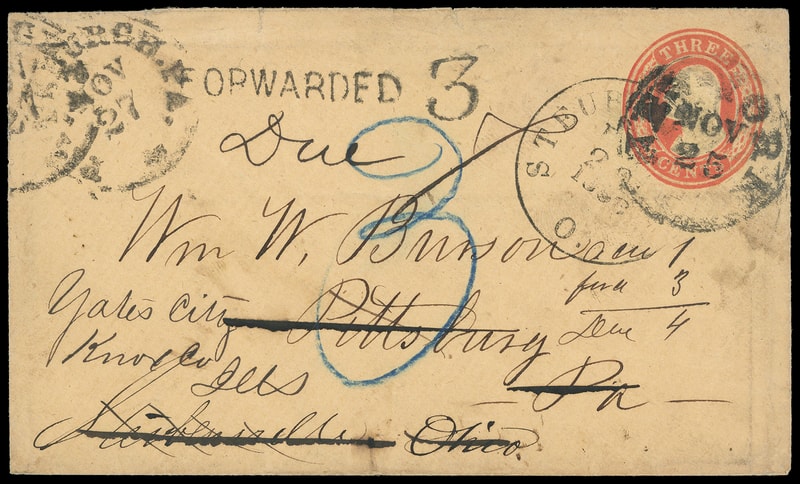 THREE CENTS
NEW YORK
NOV
25
PITTSBURGH. PA.
NOV
27
FORWARDED 3
STEUB
O.
Due 3
Wm W. Burson
Pittsburg
Pa
Yates City
Knox Co
Ills
Steubenville Ohio
Due 1
ford 3
Due 4